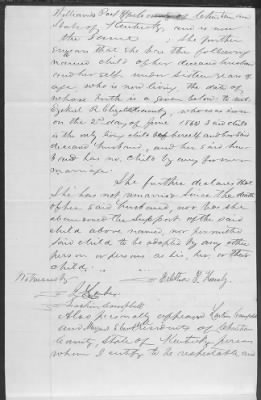 Williams Post Office of Christian
State of Kentucky, and is now
the Same; She further
swears that She has the following
named child of her deceased husband
and her self under Sixteen years of
age, who is now living, the date of
whose birth is as given below to wit
Ezekiel R. who was born
on the 2nd day of June 1860 Said child
is the only living child of herself and her said
deceased husband, and her said hus-
band has no child by any former
marriage.
She further declares that
She has not remarried Since the death
of her said husband, nor has she
abandoned the Support of the said
child above named, nor permitted
Said child to be adopted by any other
person or persons as his, her, or their
child;
Witnesses
Campbell
Also personally appeared Campbell
and residents of Christian
County, State of Kentucky persons
whom I certify to be respectable and